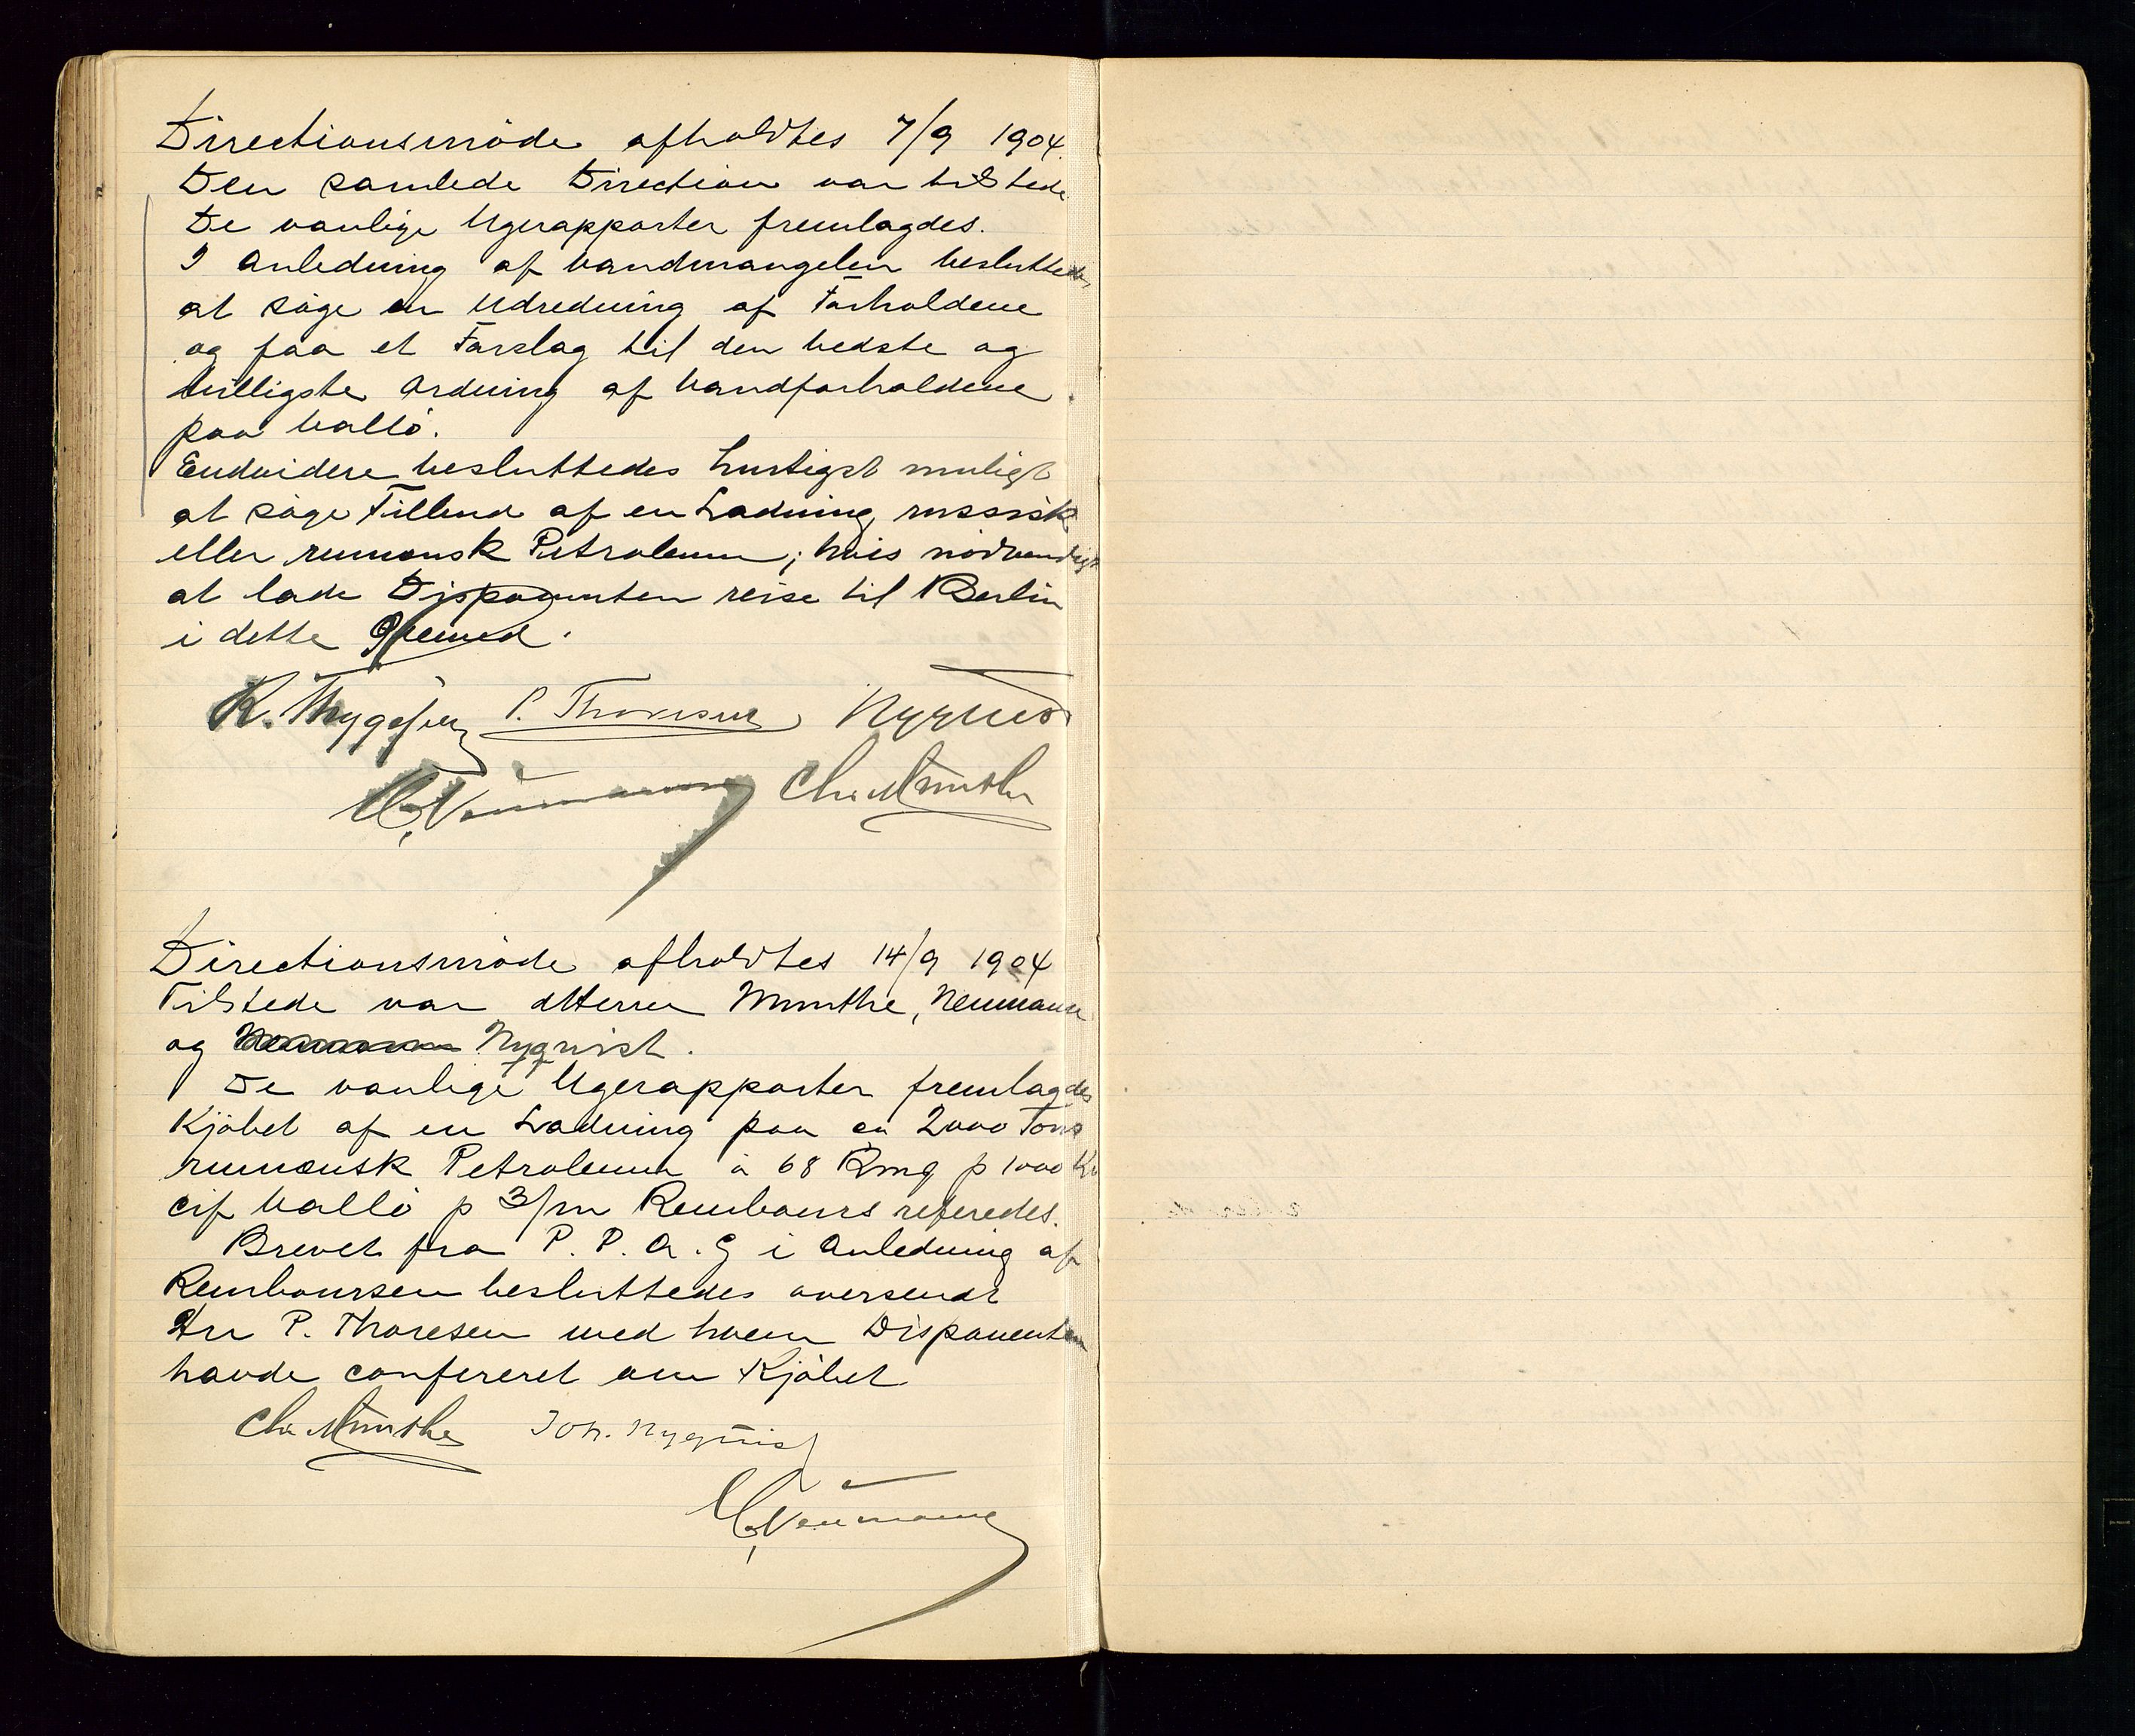 Directionsmöde afholdtes 7/9 1904.
Den samlede Direction var tilstede
De vanlige Ugerapporter fremlagdes.
I Anledning af Vandmangelen besluttedes
at söge en Udredning af Forholdene
og faa et Forslag til den bedste og
billigste Ordning af Vandforholdene
paa Vallö.
Endvidere besluttedes hurtigst muligt
at söge Tilbud af en Ladning russisk
eller rumænsk Petroleum; hvis nödvendigt
at lade Disponenten reise til Berlin
i dette Øiemed.
K. Thygesen P. Thoresen Nyquist
C. Neumann Chr Munthe
Directionsmöde afholdtes 14/9 1904
Tilstede var dHerrer Munthe, Neumann
og Nyquist.
De vanlige Ugerapporter fremlagdes
Kjöbet af en Ladning paa ca 2000 Tons
rumænsk Petroleum à 68 Rmq p 1000 Ko
cif Vallö p 3/m Rembours referedes.
Brevet fra P. P. A. G i Anledning af
Remboursen besluttedes oversendt
Hr P. Thoresen med hvem Disponenten
havde confereret om Kjöbet
Chr Munthe Joh. Nyquist
C. Neumann